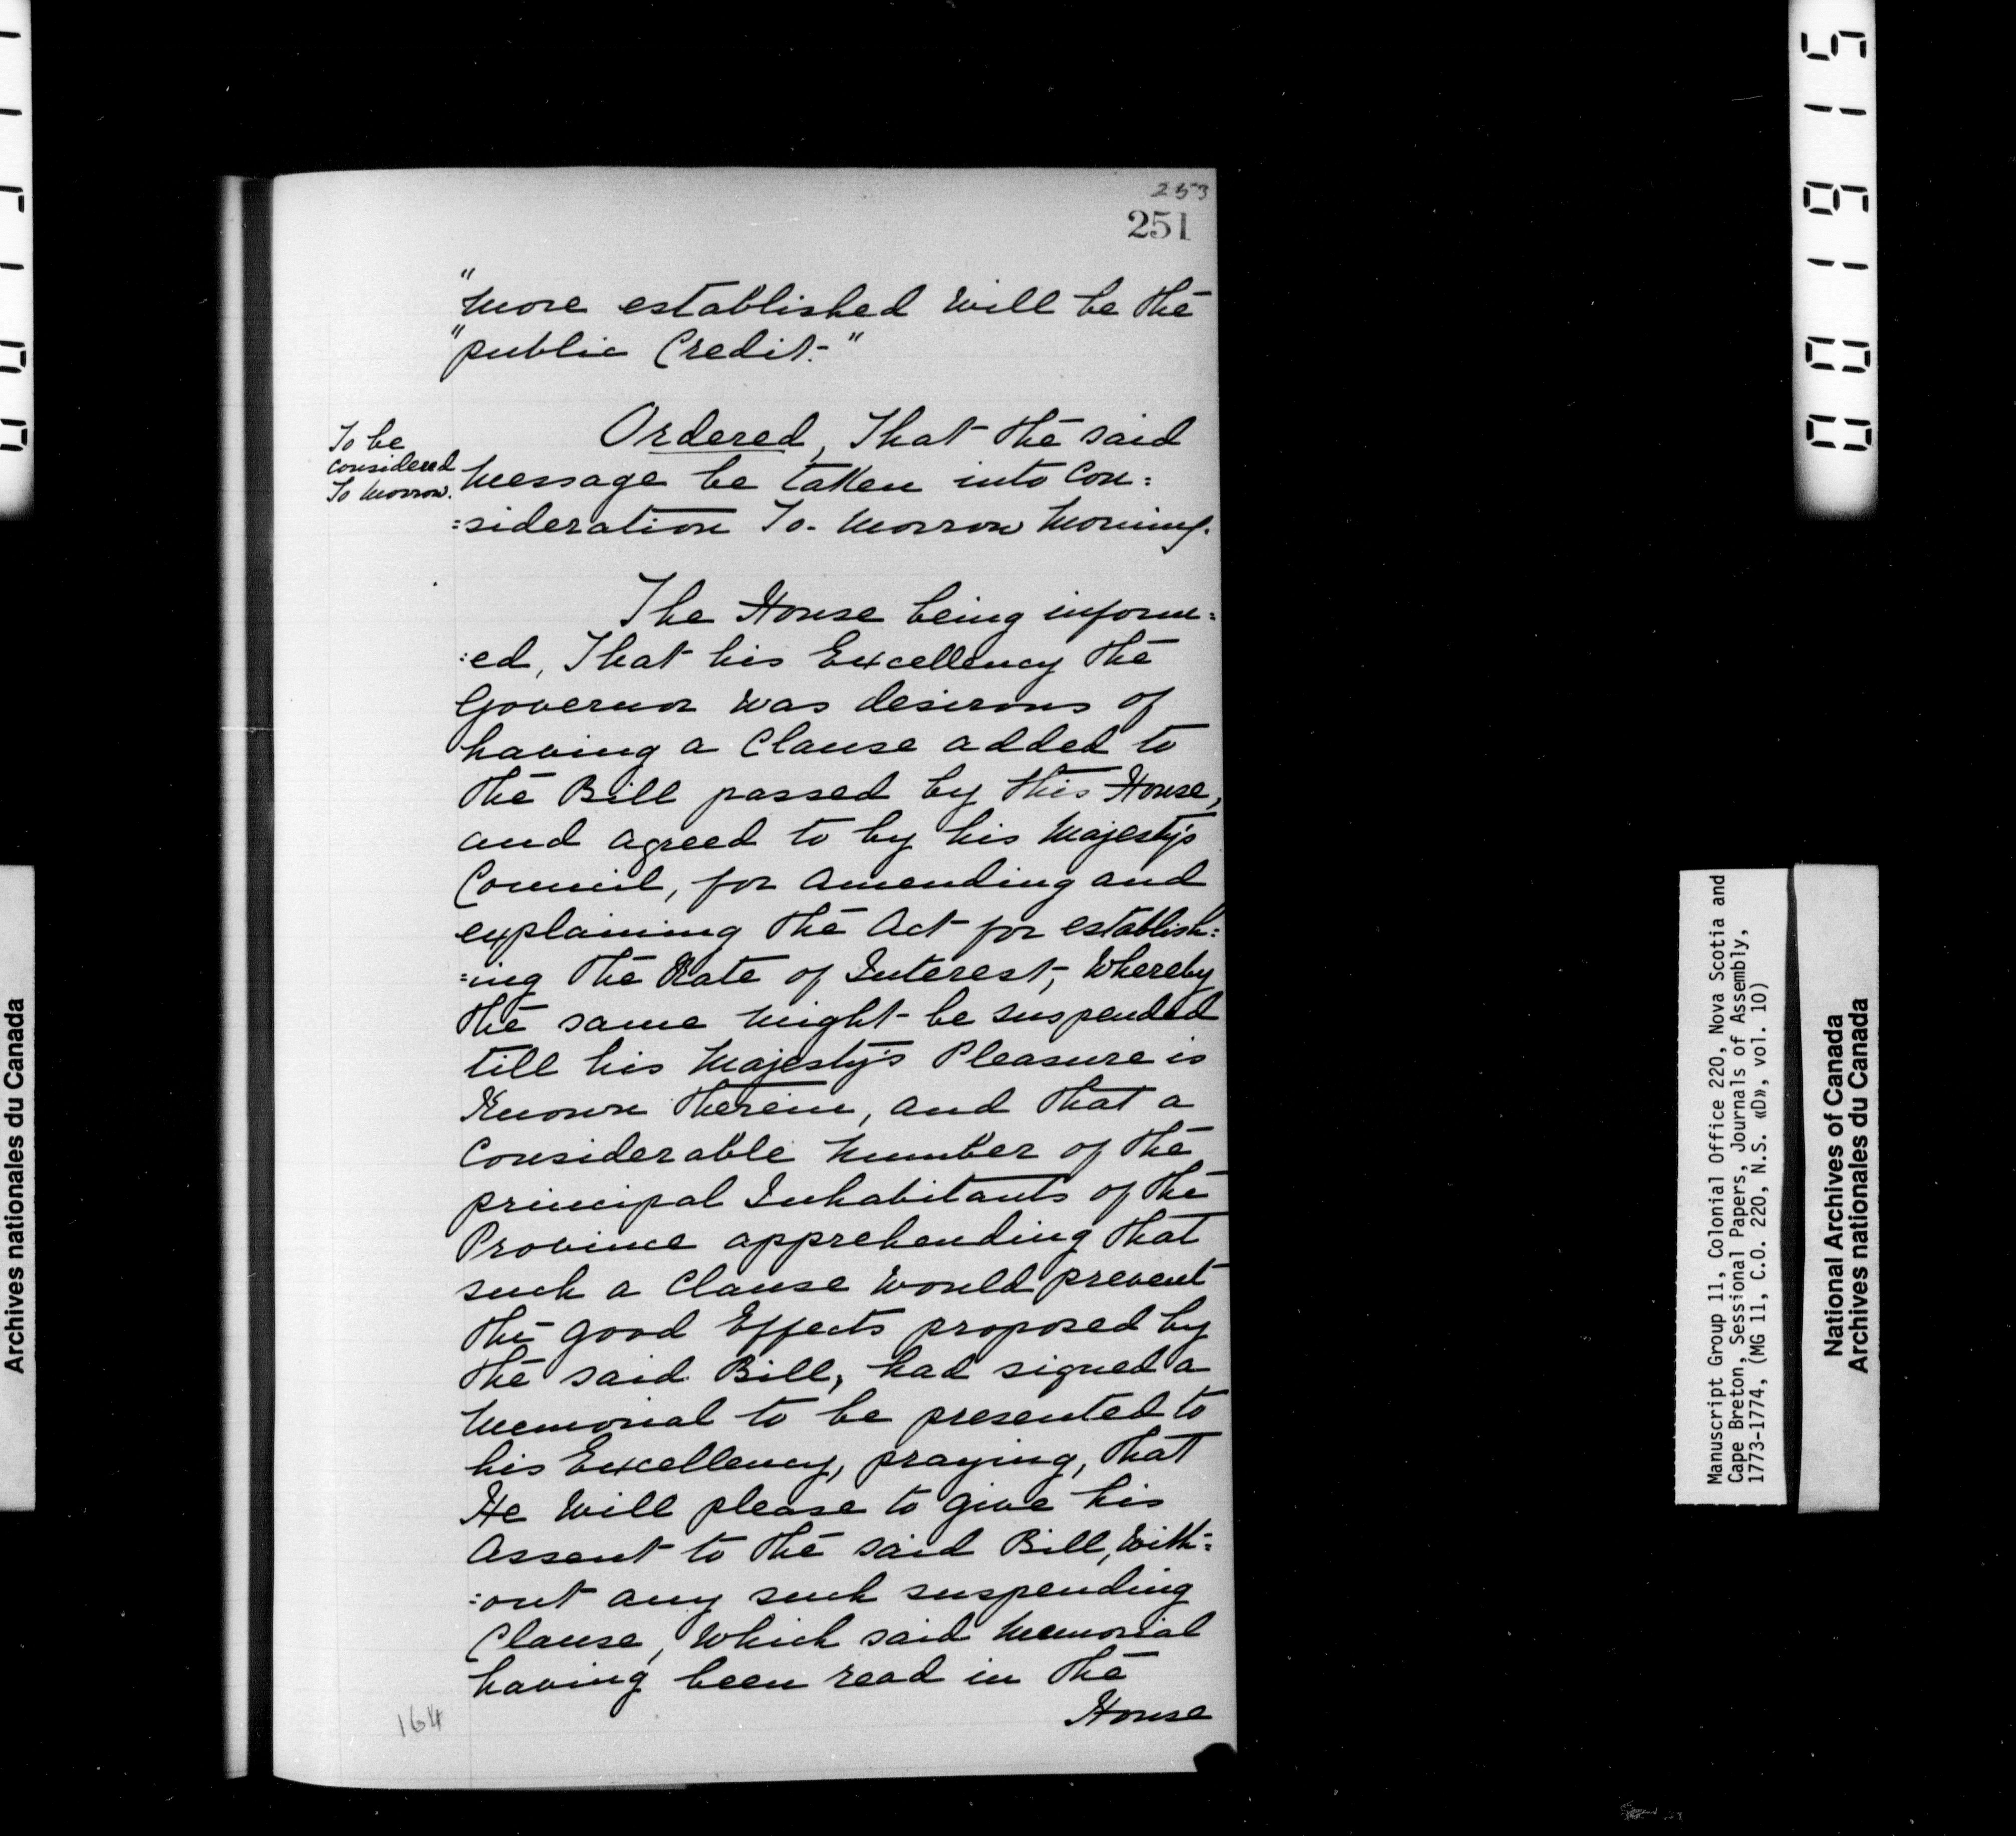 253
251
"more established will be the
"public Credit."
To be
considered
To morrow.
Ordered, That the said
Message be taken into Con=
=sideration To-morrow Morning.
The House being inform=
=ed, That his Excellency the
Governor was desirous of
having a Clause added to
the Bill passed by this House,
and agreed to by his Majesty's
Council, for amending and
explaining the Act for establish=
=ing the Rate of Interest, whereby
the same might be suspended
till his Majesty's Pleasure is
Known therein, and that a
Considerable Number of the
principal Inhabitants of the
Province apprehending that
such a Clause would prevent
the good Effects proposed by
the said Bill, had signed a
Memorial to be presented to
his Excellency, praying, that
He will please to give his
Assent to the said Bill, with=
=out any such suspending
Clause, which said Memorial
having been read in the
House
164
001915
Manuscript Group 11, Colonial Office 220, Nova Scotia and
Cape Breton, Sessional Papers, Journals of Assembly,
1773-1774, (MG 11, C.O. 220, N.S. «D», vol. 10)
National Archives of Canada
Archives nationales du Canada
Archives nationales du Canada